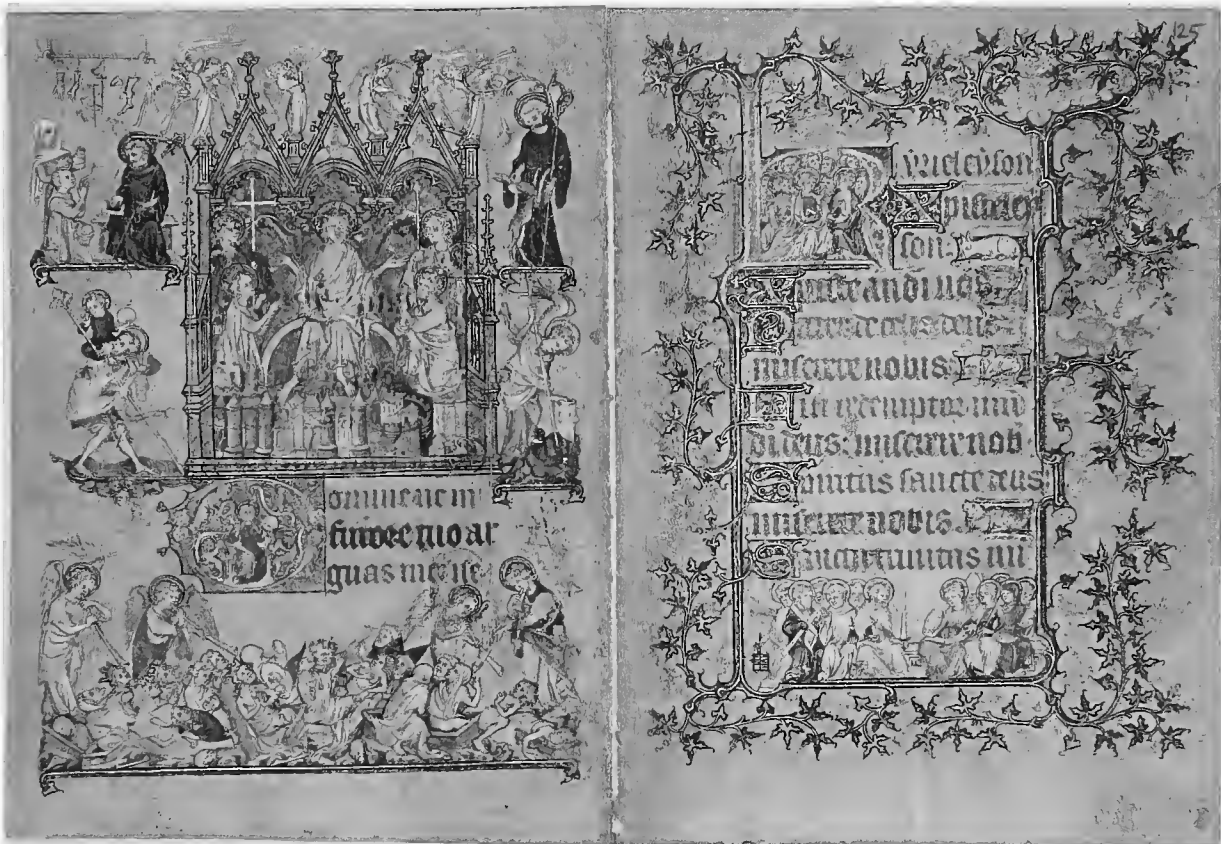 Domine ne in
furore tuo ar
guas me ne
125
Kyrieleyson
Xpisteley
son.
Xpiste audi nos
Pater de celis deus
miserere nobis.
Fili redemptor mū
di deus: miserere nob
Spiritus sancte deus
miserere nobis.
Sancta trinitas un